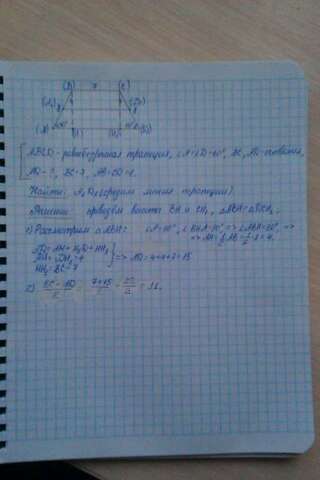 (B) 7 (C)
ABCD - равнобедренная трапеция, ∠A=∠D=60°, BC, AD - основания,
AD - ?, BC=7, AB=CD=8.
Найти: (средняя линия трапеции).
Решение: проведём высоты BH и CH₁, △ABH=△DCH₁
1) Рассмотрим △ABH: ∠A=60°, ∠BHA=90°, => ∠ABH=30°, =>
=> AH=½AB=½·8=4.
AD=AH+H₁D+HH₁
AH=DH₁=4 => AD=4+4+7=15
HH₁=BC=7
2) BC+AD/2 = 7+15/2 = 22/2 = 11.